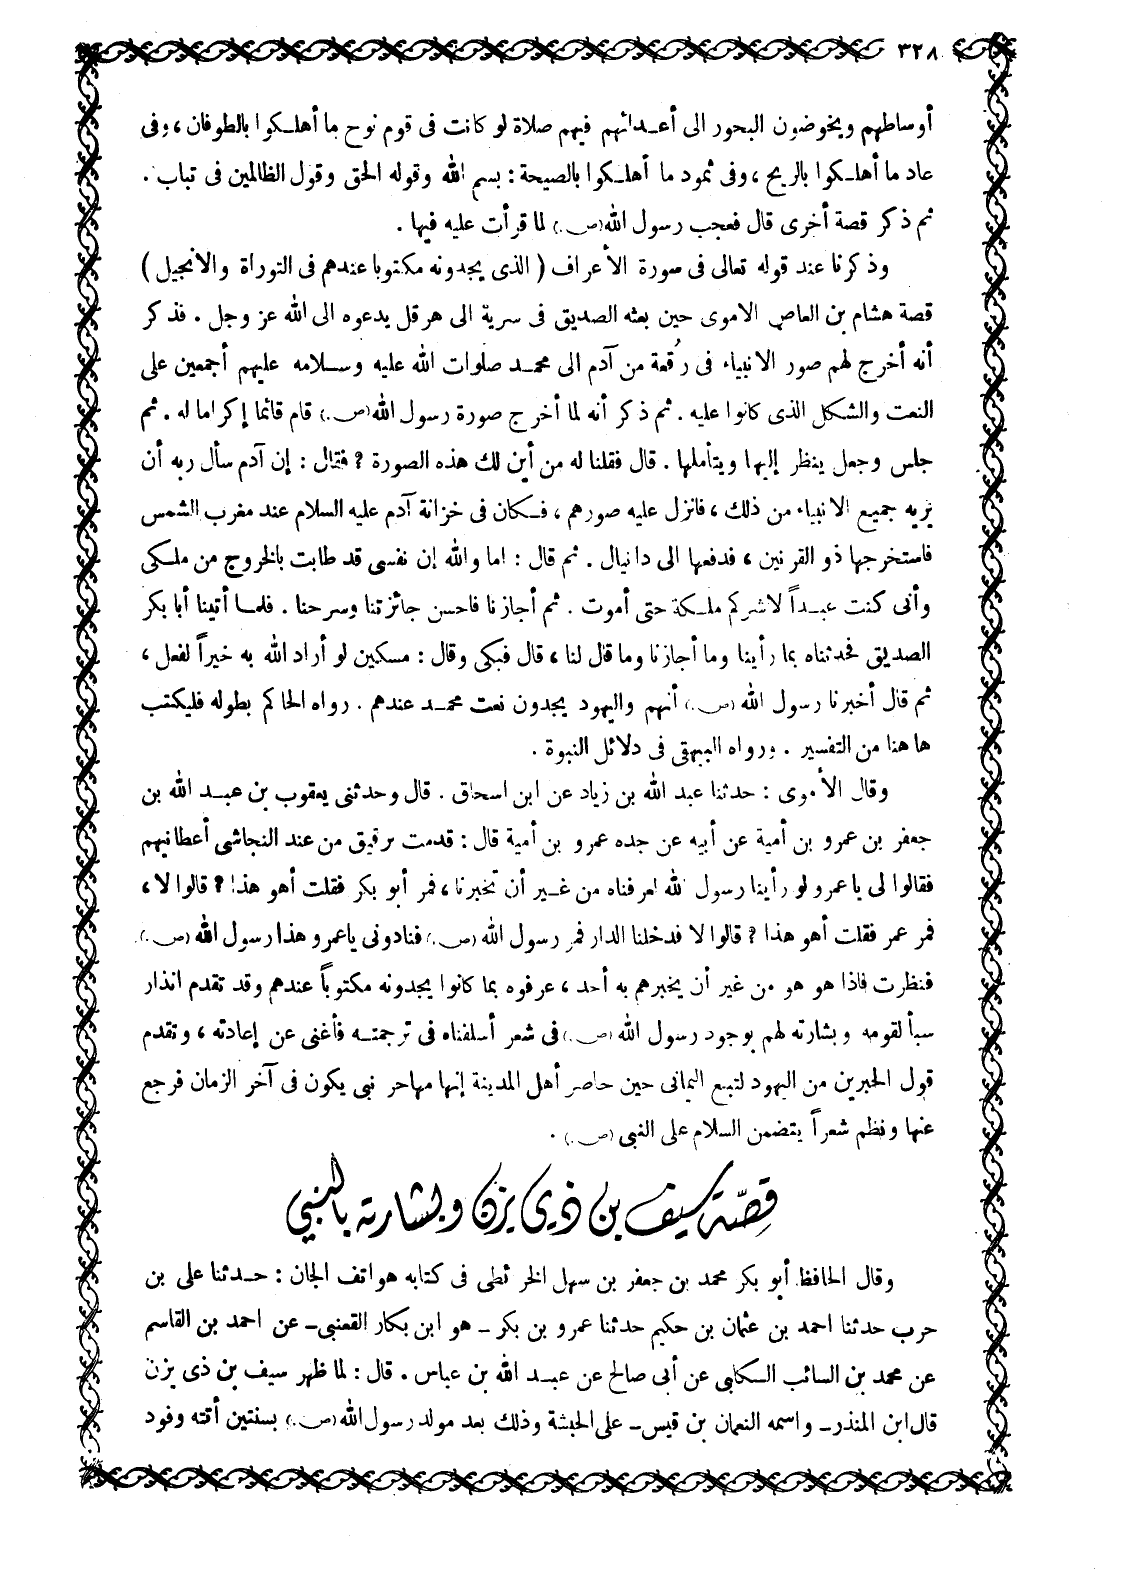 ٣٢٨
أوساطهم ويخوضون البحور الى أعدائهم فيهم صلاة لو كانت فى قوم نوح ما أهلكوا بالطوفان ، وفى
عاد ما أهلكوا بالريح ، وفى ثمود ما أهلكوا بالصيحة : بسم الله وقوله الحق وقول الظالمين فى تباب .
ثم ذكر قصة أخرى قال فعجب رسول الله (ص.) لما قرأت عليه فيها .
وذكرنا عند قوله تعالى فى سورة الأعراف ( الذى يجدونه مكتوبا عندهم فى التوراة والانجيل )
قصة هشام بن العاص الاموى حين بعثه الصديق فى سرية الى هرقل يدعوه الى الله عز وجل . فذكر
أنه أخرج لهم صور الانبياء فى رُقعة من آدم الى محمد صلوات الله عليه وسلامه عليهم أجمعين على
النعت والشكل الذى كانوا عليه . ثم ذكر أنه لما أخرج صورة رسول الله (ص.) قام قائما إكراما له . ثم
جلس وجعل ينظر إليها ويتأملها . قال فقلنا له من أين لك هذه الصورة ? فقال : إن آدم سأل ربه أن
يريه جميع الانبياء من ذلك ، فانزل عليه صورهم ، فكان فى خزانة آدم عليه السلام عند مغرب الشمس
فاستخرجها ذو القرنين ، فدفعها الى دانيال . ثم قال : اما والله إن نفسى قد طابت بالخروج من ملكى
وأنى كنت عبداً لاشركم ملكة حتى أموت . ثم أجازنا فاحسن جائزتنا وسرحنا . فلما أتينا أبا بكر
الصديق فحدثناه بما رأينا وما أجازنا وما قال لنا ، قال فبكى وقال : مسكين لو أراد الله به خيراً لفعل ،
ثم قال أخبرنا رسول الله (ص.) أنهم واليهود يجدون نعت محمد عندهم . رواه الحاكم بطوله فليكتب
هاهنا من التفسير . ورواه البيهقى فى دلائل النبوة .
وقال الأموى : حدثنا عبد الله بن زياد عن ابن اسحاق . قال وحدثنى يعقوب بن عبد الله بن
جعفر بن عمرو بن أمية عن أبيه عن جده عمرو بن أمية قال : قدمت برقيق من عند النجاشى أعطانيهم
فقالوا لى يا عمرو لو رأينا رسول الله لعرفناه من غير أن تخبرنا ، فمر أبو بكر فقلت أهو هذا ? قالوا لا ،
فمر عمر فقلت أهو هذا ? قالوا لا فدخلنا الدار فمر رسول الله (ص.) فنادونى ياعمرو هذا رسول الله (ص.)
فنظرت فاذا هو هو من غير أن يخبرهم به أحد ، عرفوه بما كانوا يجدونه مكتوباً عندهم وقد تقدم انذار
سبأ لقومه وبشارته لهم بوجود رسول الله (ص.) فى شعر أسلفناه فى ترجمته فأغنى عن إعادته ، وتقدم
قول الحبرين من اليهود لتبع اليمانى حين حاصر أهل المدينة إنها مهاجر نبى يكون فى آخر الزمان فرجع
عنها ونظم شعراً يتضمن السلام على النبى (ص.) .
قصّة سيف بن ذي يزن وبشارته بالنبي
وقال الحافظ أبو بكر محمد بن جعفر بن سهل الخرائطى فى كتابه هواتف الجان : حدثنا على بن
حرب حدثنا احمد بن عثمان بن حكيم حدثنا عمرو بن بكر ـ هو ابن بكار القعنبى ـ عن احمد بن القاسم
عن محمد بن السائب الكلبى عن أبى صالح عن عبد الله بن عباس . قال : لما ظهر سيف بن ذى يزن
قال ابن المنذر ـ واسمه النعمان بن قيس ـ على الحبشة وذلك بعد مولد رسول الله (ص.) بسنتين أتته وفود